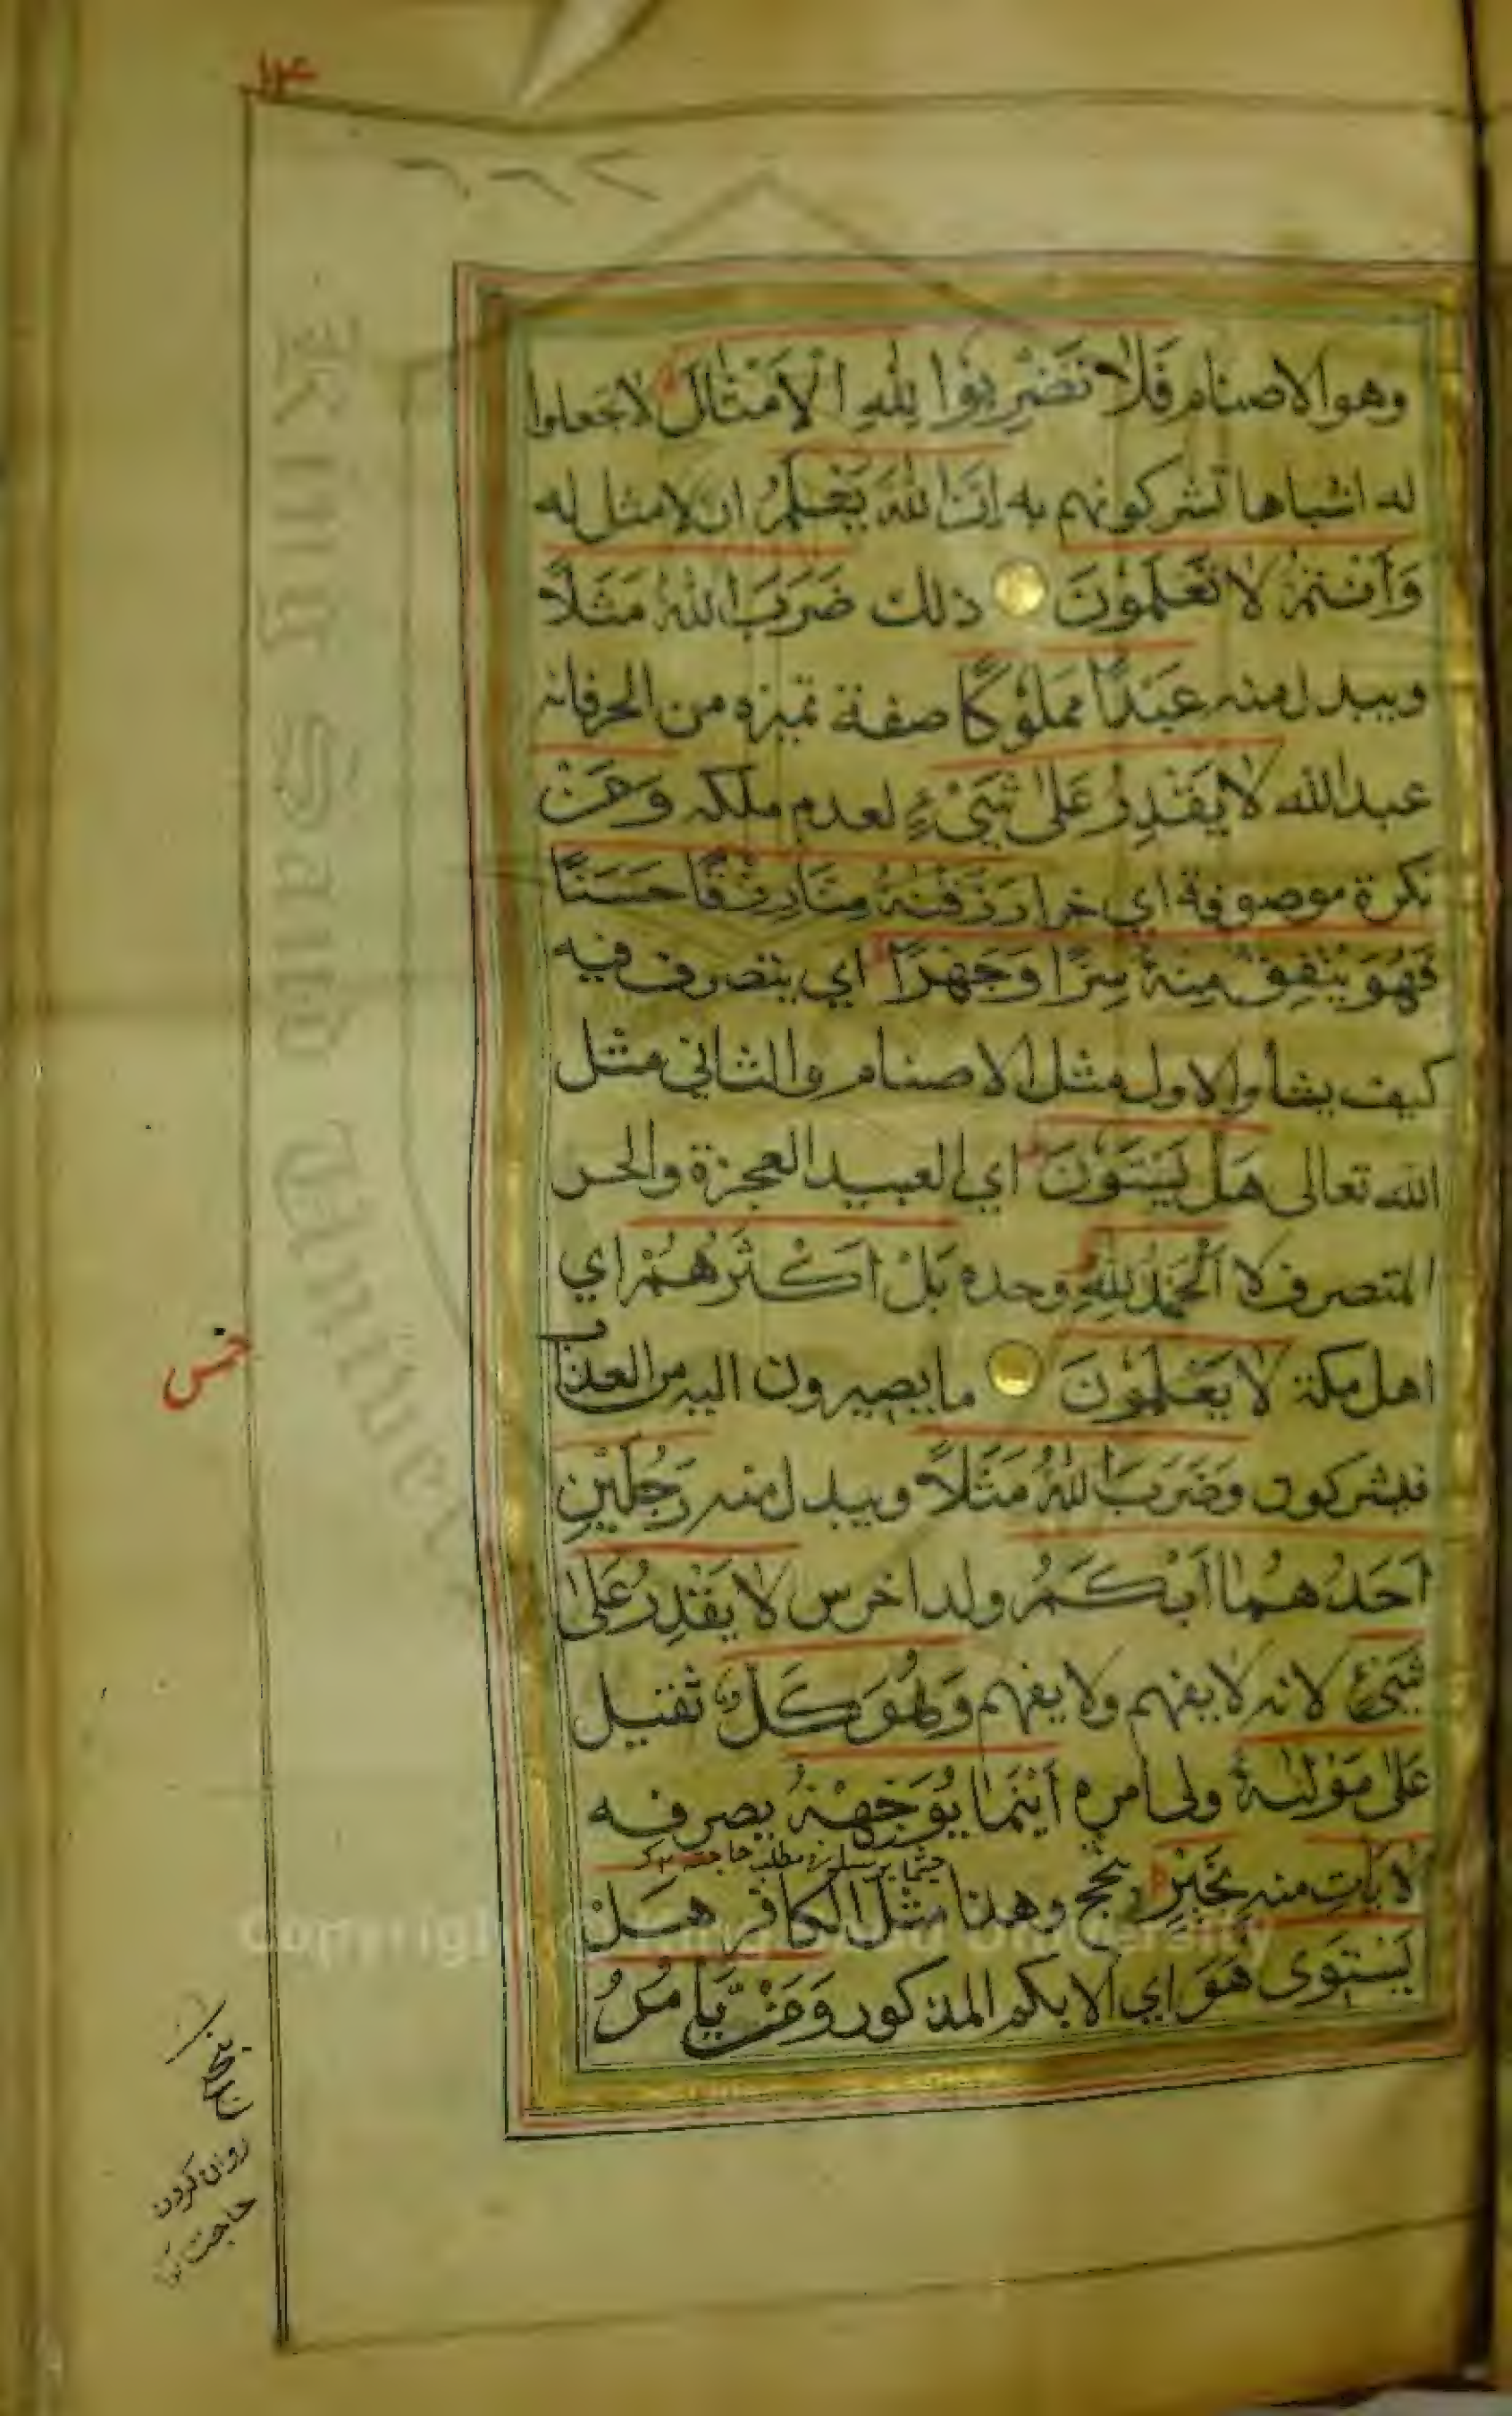 ١٤
٢٦٦
وهو الاصنام فَلَا تَضْرِبُوا لِلّٰهِ الْاَمْثَالَ لا تجعلوا
له اشباها تشركونهم به اِنَّ اللّٰهَ يَعْلَمُ ان لا مثل له
وَاَنْتُمْ لَا تَعْلَمُونَ ذلك ضَرَبَ اللّٰهُ مَثَلًا
ويبدل منه عَبْدًا مَمْلُوْكًا صفة تميزه من الحر فانه
عبد الله لَا يَقْدِرُ عَلٰى شَيْءٍ لعدم ملكه وَمَنْ
نكرة موصوفة اي حرا رَزَقْنٰهُ مِنَّا رِزْقًا حَسَنًا
فَهُوَ يُنْفِقُ مِنْهُ سِرًّا وَجَهْرًا اي يتصرف فيه
كيف يشأ والاول مثل الاصنام والثاني مثل
الله تعالى هَلْ يَسْتَوٗنَ اي العبيد العجزة والحر
المتصرف لا اَلْحَمْدُ لِلّٰهِ وحده بَلْ اَكْثَرُهُمْ اي
اهل مكة لَا يَعْلَمُوْنَ ما يصيرون اليه من العذاب
فيشركون وَضَرَبَ اللّٰهُ مَثَلًا ويبدل منه رَجُلَيْنِ
اَحَدُهُمَا اَبْكَمُ ولد اخرس لَا يَقْدِرُ عَلٰى
شَيْءٍ لانه لا يفهم ولا يفهم وَهُوَ كَلٌّ ثقيل
عَلٰى مَوْلٰىهُ ولي امره اَيْنَمَا يُوَجِّهْهُ يصرفه
لَا يَاْتِ منه بِخَيْرٍ بنجح وهذا مثل الكافر هَلْ
يَسْتَوِى هُوَ اي الابكم المذكور وَمَنْ يَّاْمُرُ
خس
روان كردن
حاجت
King Saud University
Copyright © King Saud University